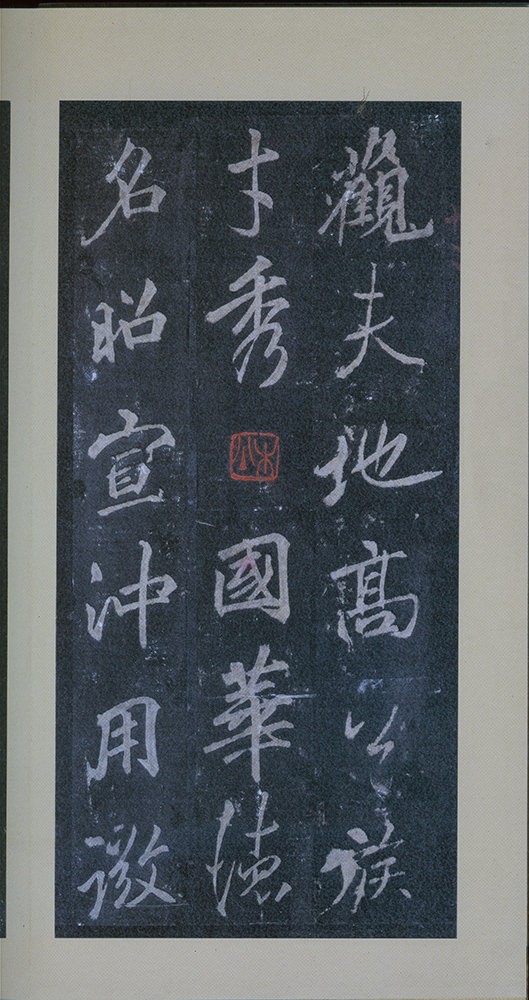 觀夫地高公族
才秀國華徳
名昭宣沖用微